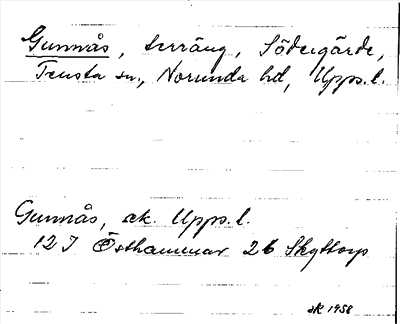 Gunnås, terräng, Södergärde,
Tensta sn., Norunda hd, Upps. l.
Gunnås, ek. Upps. l.
12 I Östhammar 26 Skyttorp
ek 1958